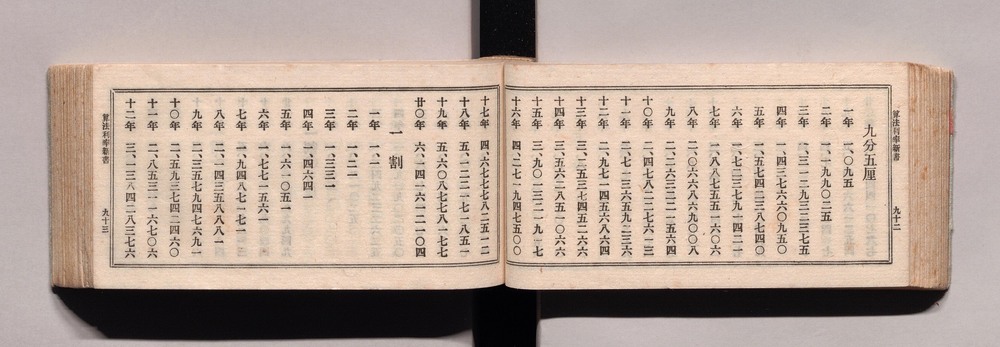 算法利率新書 九十二
九分五厘
一年 一、〇九五
二年 一、一九九〇二五
三年 一、三一二九三二三七五
四年 一、四三七六六〇九五〇
五年 一、五七四二三八七四〇
六年 一、七二三七九一四二一
七年 一、八八七五五一六〇六
八年 二、〇六六八六九〇〇八
九年 二、二六三二二一五六四
十〇年 二、四七八二二七六一三
十一年 二、七一三六五九二三六
十二年 二、九七一四五六八六四
十三年 三、二五三七四五二六六
十四年 三、五六二八五一〇六六
十五年 三、九〇一三二一九一七
十六年 四、二七一九四七五〇〇
十七年 四、六七七七八二五一二
十八年 五、一二二一七一八五一
十九年 五、六〇八七七八一七七
廿〇年 六、一四一六一二一〇四
一割
一年 一、一
二年 一、二一
三年 一、三三一
四年 一、四六四一
五年 一、六一〇五一
六年 一、七七一五六一
七年 一、九四八七一七一
八年 二、一四三五八八八一
九年 二、三五七九四七六九一
十〇年 二、五九三七四二四六〇
十一年 二、八五三一一六七〇六
十二年 三、一三八四二八三七六
算法利率新書 九十三